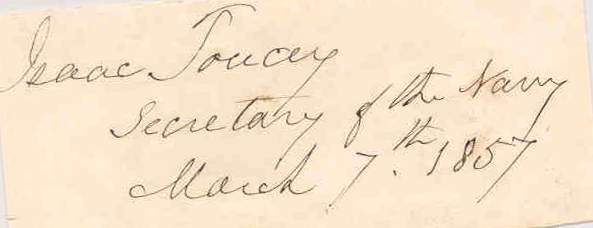 Isaac Toucey
Secretary of the Navy
March 7.th 1857